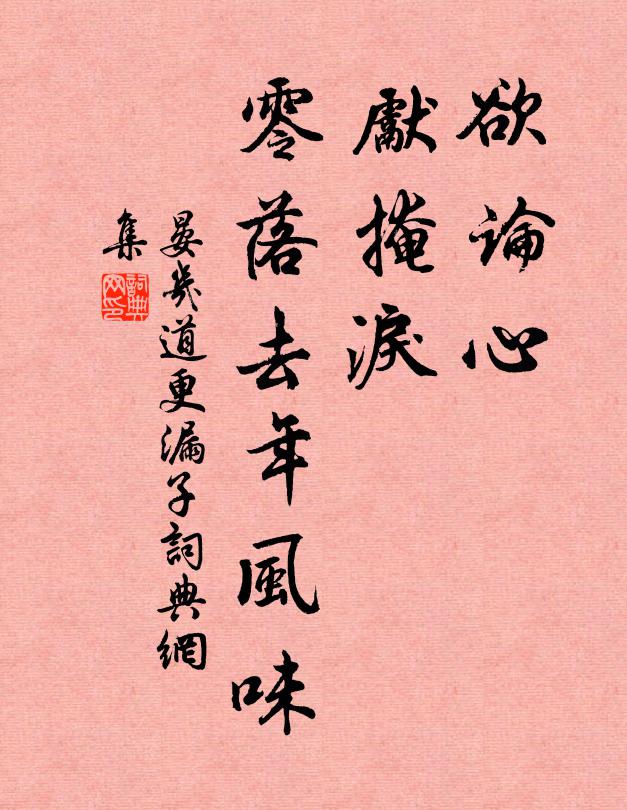 欲論心
獻掩淚
零落去年風味
晏幾道更漏子詞典網
集
詞典
网印